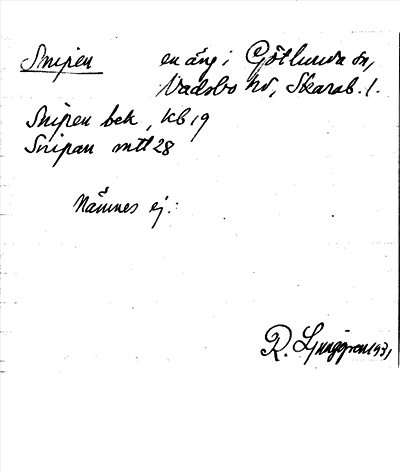 Snipen en äng i Götlunda sn,
Vadsbo hd, Skarab. l.
Snipen bek, KB 19
Snipan mtl 28
Nämnes ej.
R. Ljunggren 1931